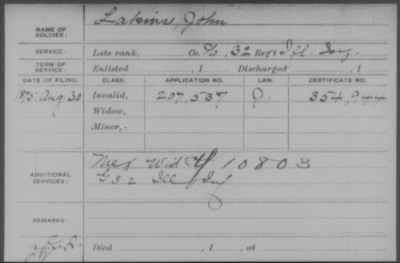 NAME OF SOLDIER: Lakins, John
SERVICE: Late rank, Co. G, 32 Reg't Ill. Inf.
TERM OF SERVICE: Enlisted , 1 Discharged , 1
DATE OF FILING. CLASS. APPLICATION NO. LAW. CERTIFICATE NO.
Aug 30 Invalid, 207,537 354,944
Widow,
Minor,-
ADDITIONAL SERVICES: Mex Wid 10803
G 32 Ill Inf
REMARKS:
Died , 1 , at